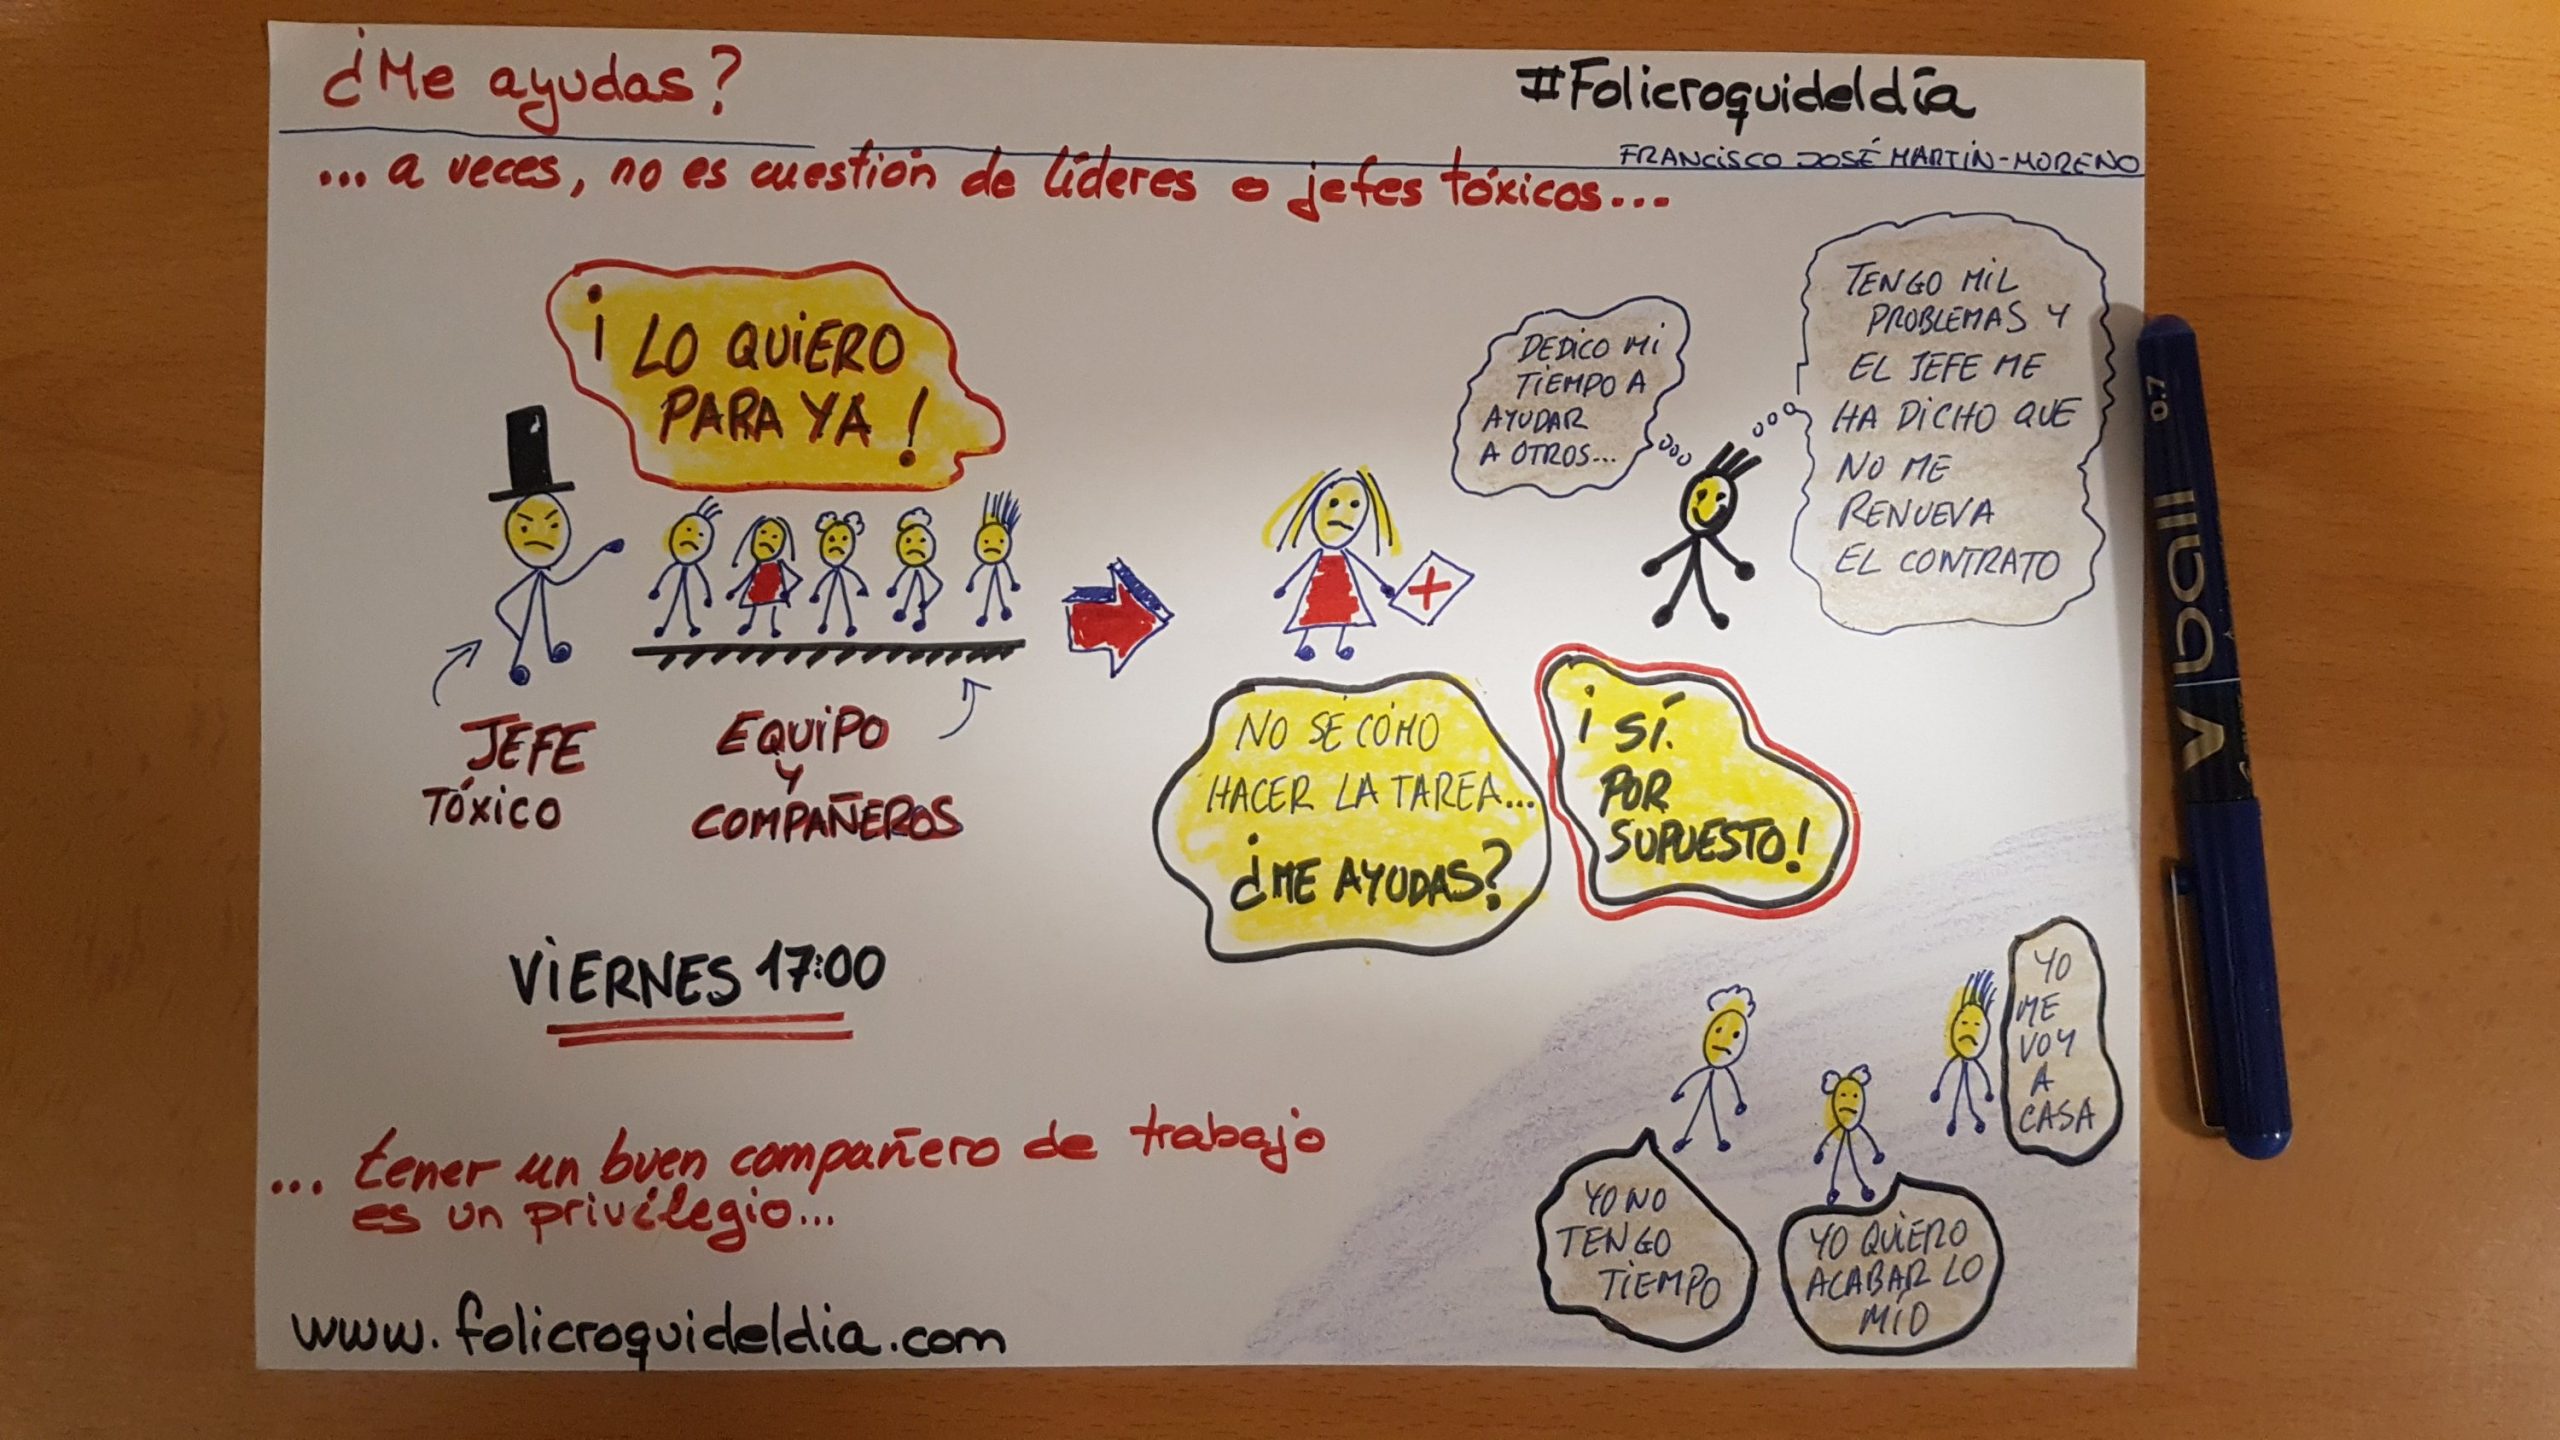 ¿Me ayudas?
#Folicroquideldía
FRANCISCO JOSÉ MARTÍN-MORENO
... a veces, no es cuestión de líderes o jefes tóxicos...
¡LO QUIERO
PARA YA!
JEFE
TÓXICO
EQUIPO
Y
COMPAÑEROS
VIERNES 17:00
DEDICO MI
TIEMPO A
AYUDAR
A OTROS...
TENGO MIL
PROBLEMAS Y
EL JEFE ME
HA DICHO QUE
NO ME
RENUEVA
EL CONTRATO
NO SÉ CÓMO
HACER LA TAREA...
¿ME AYUDAS?
¡SÍ.
POR
SUPUESTO!
YO NO
TENGO
TIEMPO
YO QUIERO
ACABAR LO
MÍO
YO
ME
VOY
A
CASA
... tener un buen compañero de trabajo
es un privilegio...
www.folicroquideldia.com
0.7
Vball